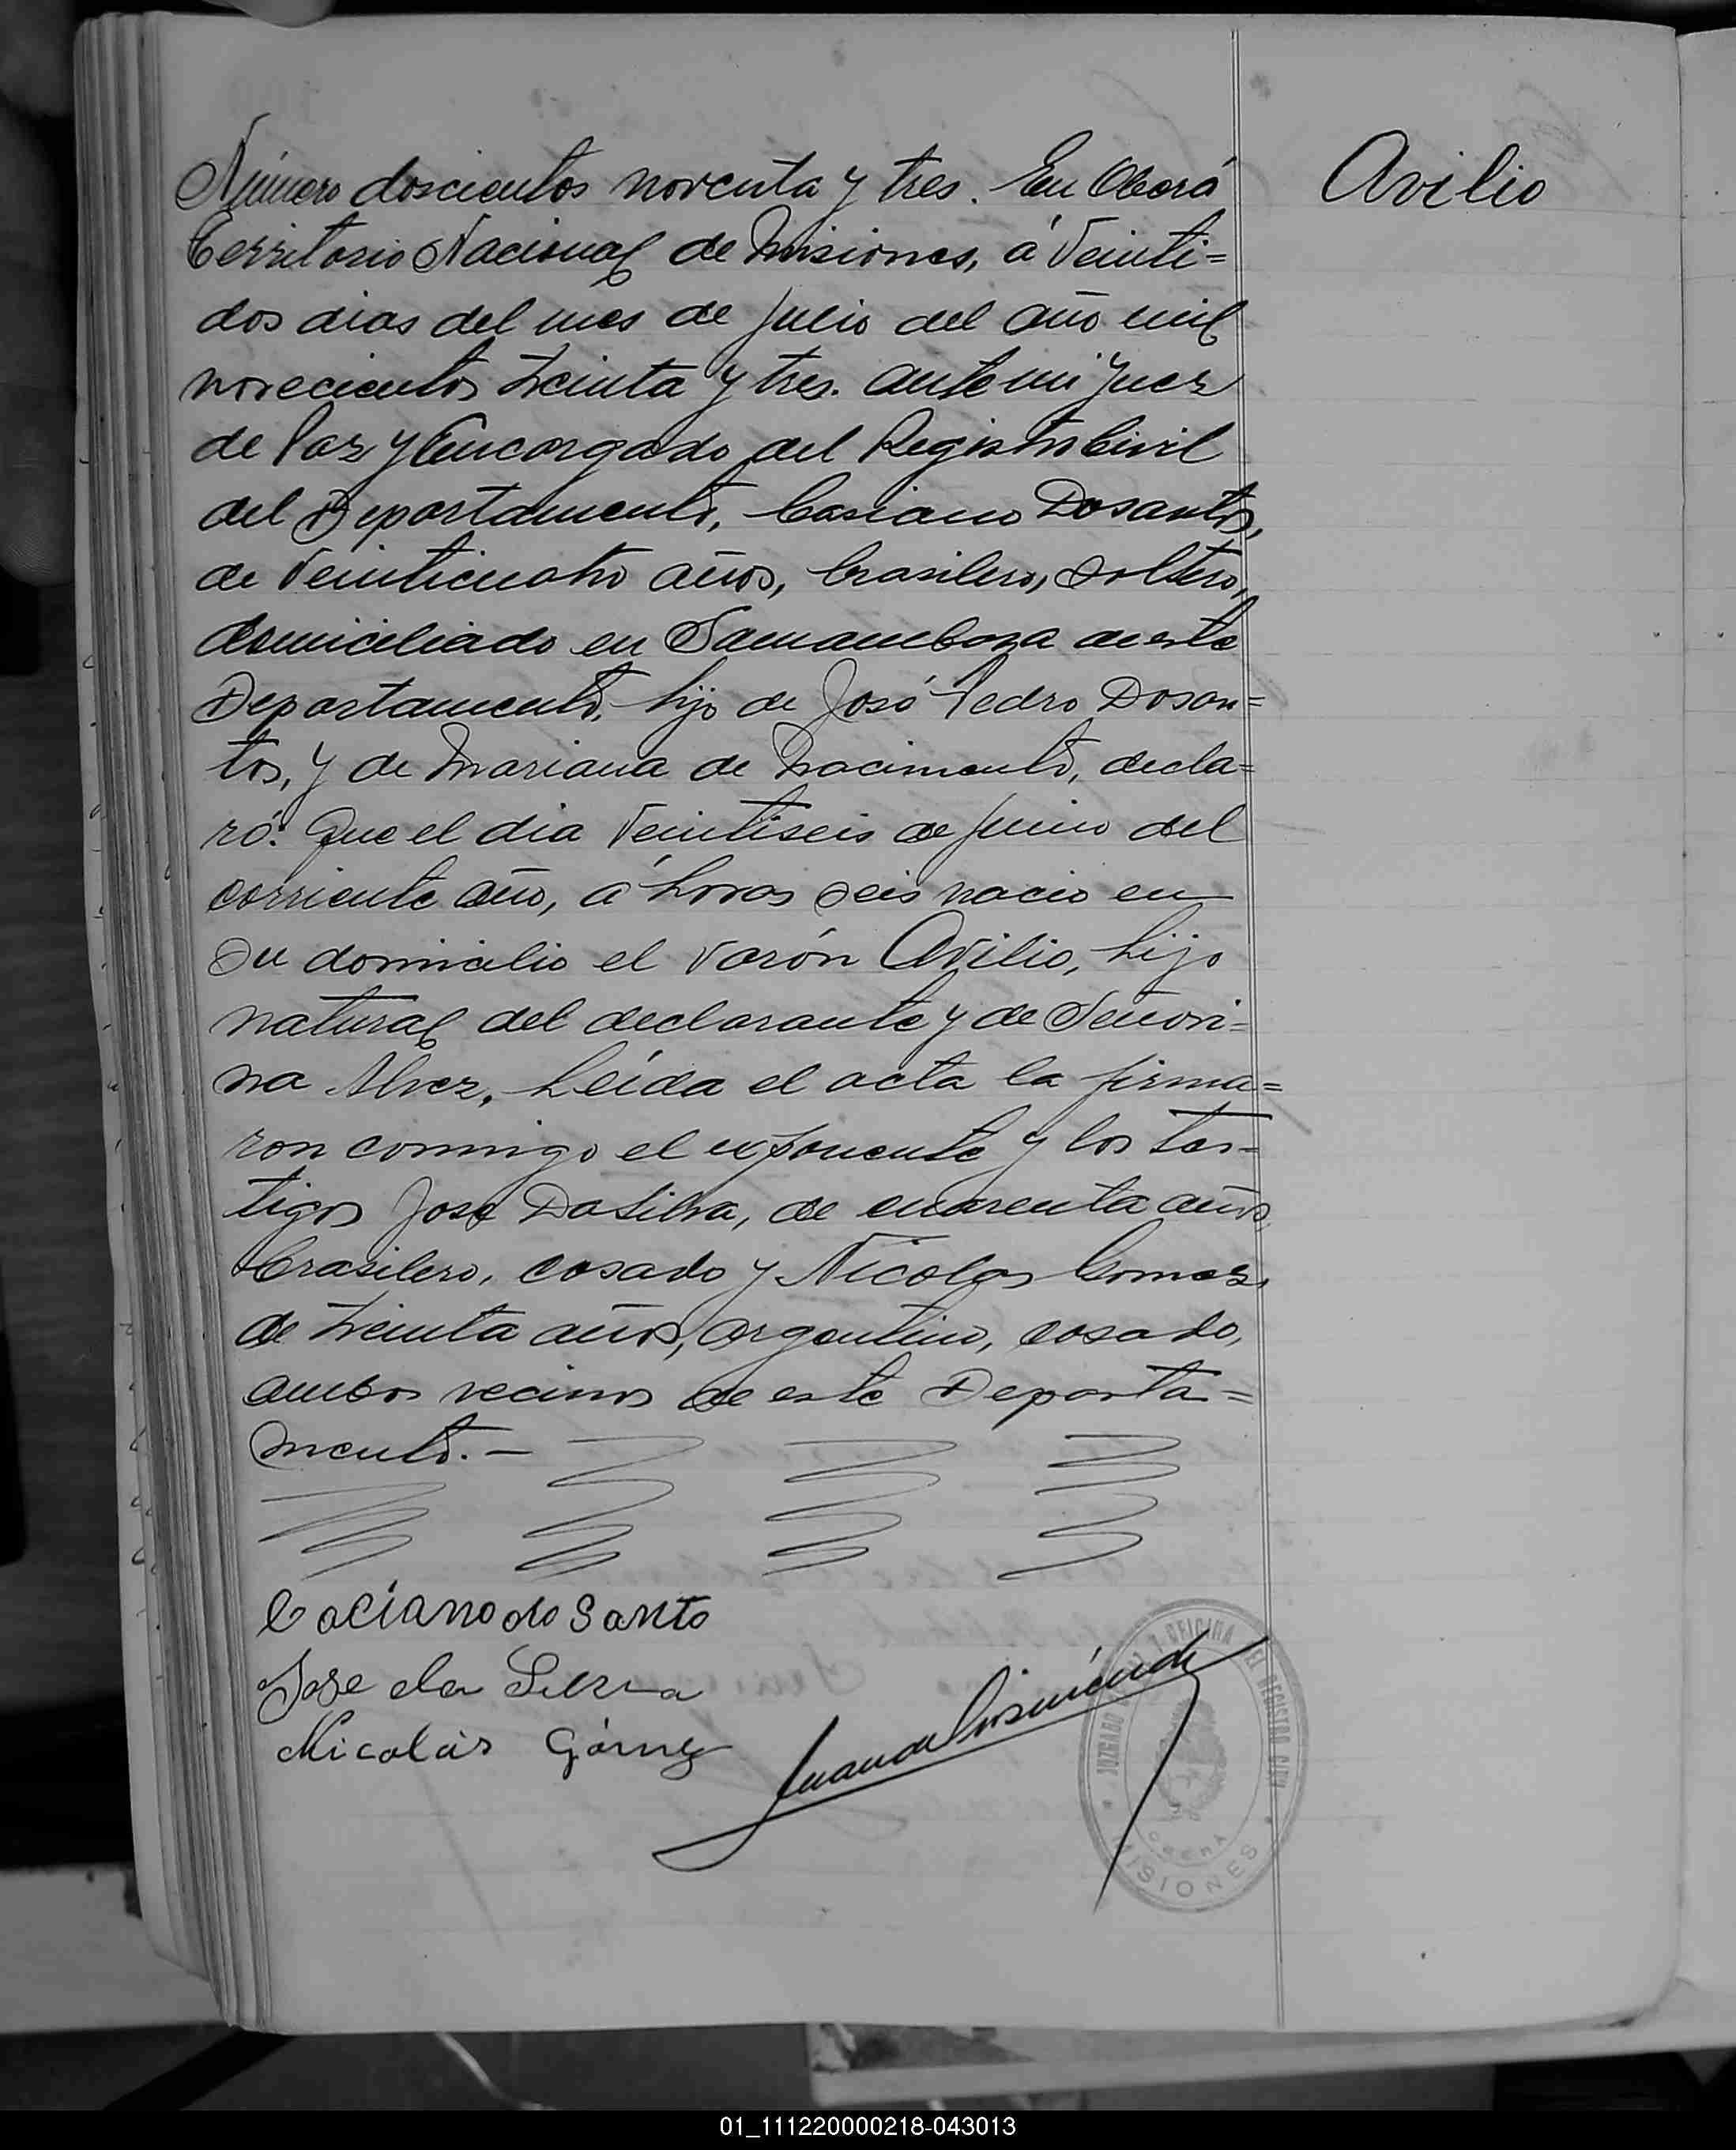 Número doscientos noventa y tres. En Oberá
Avilio
Territorio Nacional de Misiones, á Veinti=
dos dias del mes de Julio del año mil
novecientos treinta y tres. ante mi Juez
de Paz y Encargado del Registro Civil
del Departamento, Casiano Dosantos,
de Veinticuatro años, brasilero, soltero,
domiciliado en Samambaya de este
Departamento, hijo de José Pedro Dosan=
tos, y de Mariana de Nacimento, decla=
ró: Que el dia Veintiseis de Junio del
corriente año, á horas seis nacio en
su domicilio el varón Avilio, hijo
natural del declarante y de Señori=
na Alvez. Leída el acta la firma=
ron conmigo el exponente y los tes=
tigos José DaSilva, de cuarenta años
brasilero, casado y Nicolas Gomez,
de treinta años, argentino, casado,
ambos vecinos de este Departa=
mento.-
Caciano do Santo
Jose da Silva
Nicolás Gómez
JUZGADO DE PAZ Y OFICINA DEL REGISTRO CIVIL
OBERÁ
MISIONES
01_111220000218-043013